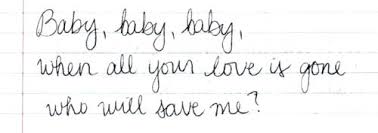 Baby, baby, baby,
when all your love is gone
who will save me?